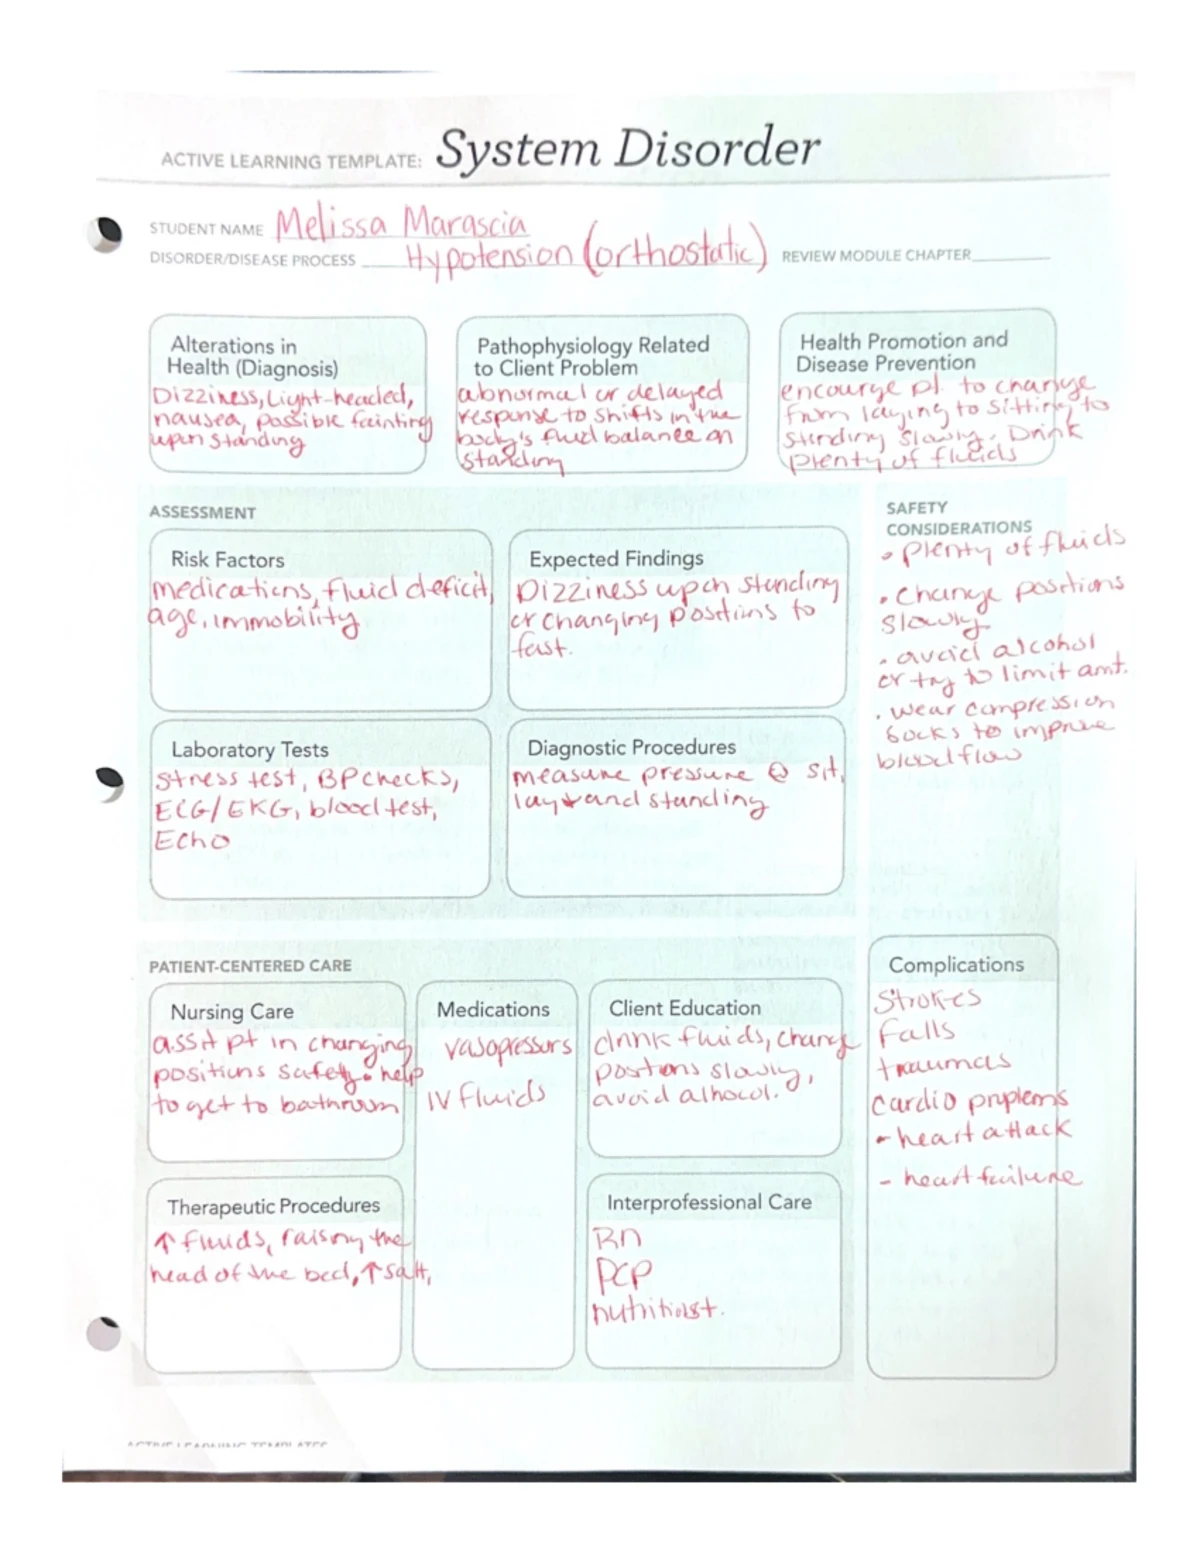 ACTIVE LEARNING TEMPLATE: System Disorder
STUDENT NAME Melissa Marascia
DISORDER/DISEASE PROCESS Hypotension (orthostatic) REVIEW MODULE CHAPTER
Alterations in
Health (Diagnosis)
Dizziness, Light-headed,
nausea, possible fainting
upon standing
Pathophysiology Related
to Client Problem
abnormal or delayed
response to shifts in the
body's fluid balance on
standing
Health Promotion and
Disease Prevention
encourge pt. to change
from laying to sitting to
standing slowly. Drink
plenty of fluids
ASSESSMENT
Risk Factors
medications, fluid deficit,
age, immobility
Expected Findings
Dizziness upon standing
or changing positions to
fast.
Laboratory Tests
Stress test, BP checks,
ECG/EKG, blood test,
Echo
Diagnostic Procedures
measure pressure @ sit,
lay + and standing
SAFETY
CONSIDERATIONS
• plenty of fluids
• Change positions
slowly
• avoid alcohol
or try to limit amt.
• wear compression
socks to improve
blood flow
PATIENT-CENTERED CARE
Nursing Care
assit pt in changing
positions safety • help
to get to bathroom
Medications
vasopressors
IV fluids
Client Education
drink fluids, change
positions slowly,
avoid alhocol.
Therapeutic Procedures
↑ fluids, raising the
head of the bed, ↑ salt,
Interprofessional Care
RN
PCP
nutritionist.
Complications
Strokes
Falls
traumas
cardio problems
- heart attack
- heart failure
ACTIVE LEARNING TEMPLATES